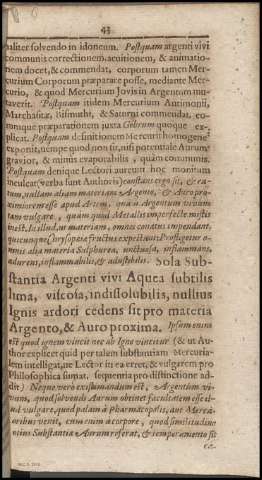 43
aliter solvendo in idoneum. Postquam argenti vivi
communis correctionem, acuitionem, & animatio-
nem docet, & commendat, corporum tamen Mer-
curium Corporum præparare posse, mediante Mer-
curio, & quod Mercurius Jovis in Argentum mu-
taverit. Postquam itidem Mercurium Antimonii,
Marchasitæ, Bismuthi, & Saturni commendat, eo-
rumque præparationem juxta Gebrum quoque ex-
plicat. Postquam definitionem Mercurii homogenei
exponit, nempe quod non sit, nisi potentiale Aurum
gravior, & minus evaporabilis, quàm communis.
Postquam denique Lectori aurem hoc monitum
inculcat (verba sunt Authoris) constans ergo sit, & ra-
tum, nullam aliam materiam Argento, & Auro pro-
ximiorem esse apud Artem, quam Argentum vivum
tam vulgare, quam quod Metallis imperfectis mistis
inest. In illud, ut materiam, omnis conatus impendant,
quicunque Chrysopœiæ fructus expectant: Profligetur a-
mnis alia materia Sulphurea, unctuosa, inflammans,
adurens, inflammabilis, & adustibilis. Sola Sub-
stantia Argenti vivi Aquea subtilis
lima, viscosa, indissolubilis, nullius
Ignis ardori cedens sit pro materia
Argento, & Auro proxima. Ipsum enim
est quod ignem vincit nec ab Igne vincitur (& ut Au-
thor explicet quid per talem substantiam Mercuria-
lem intelligat, ne Lector iti ea erret, & vulgarem pro
Philosophica sumat, sequentia pro distinctione ad-
dit) Neque verò existimandum est, Argentum vi-
vum, quod solvendi Aurum obtinet facultatem esse il-
lud vulgare, quod palàm à Pharmacopolis, aut Merca-
toribus venit, cum eum accorpore, quod similitudine
totius Substantiæ Aurum referat, & temperamento sit